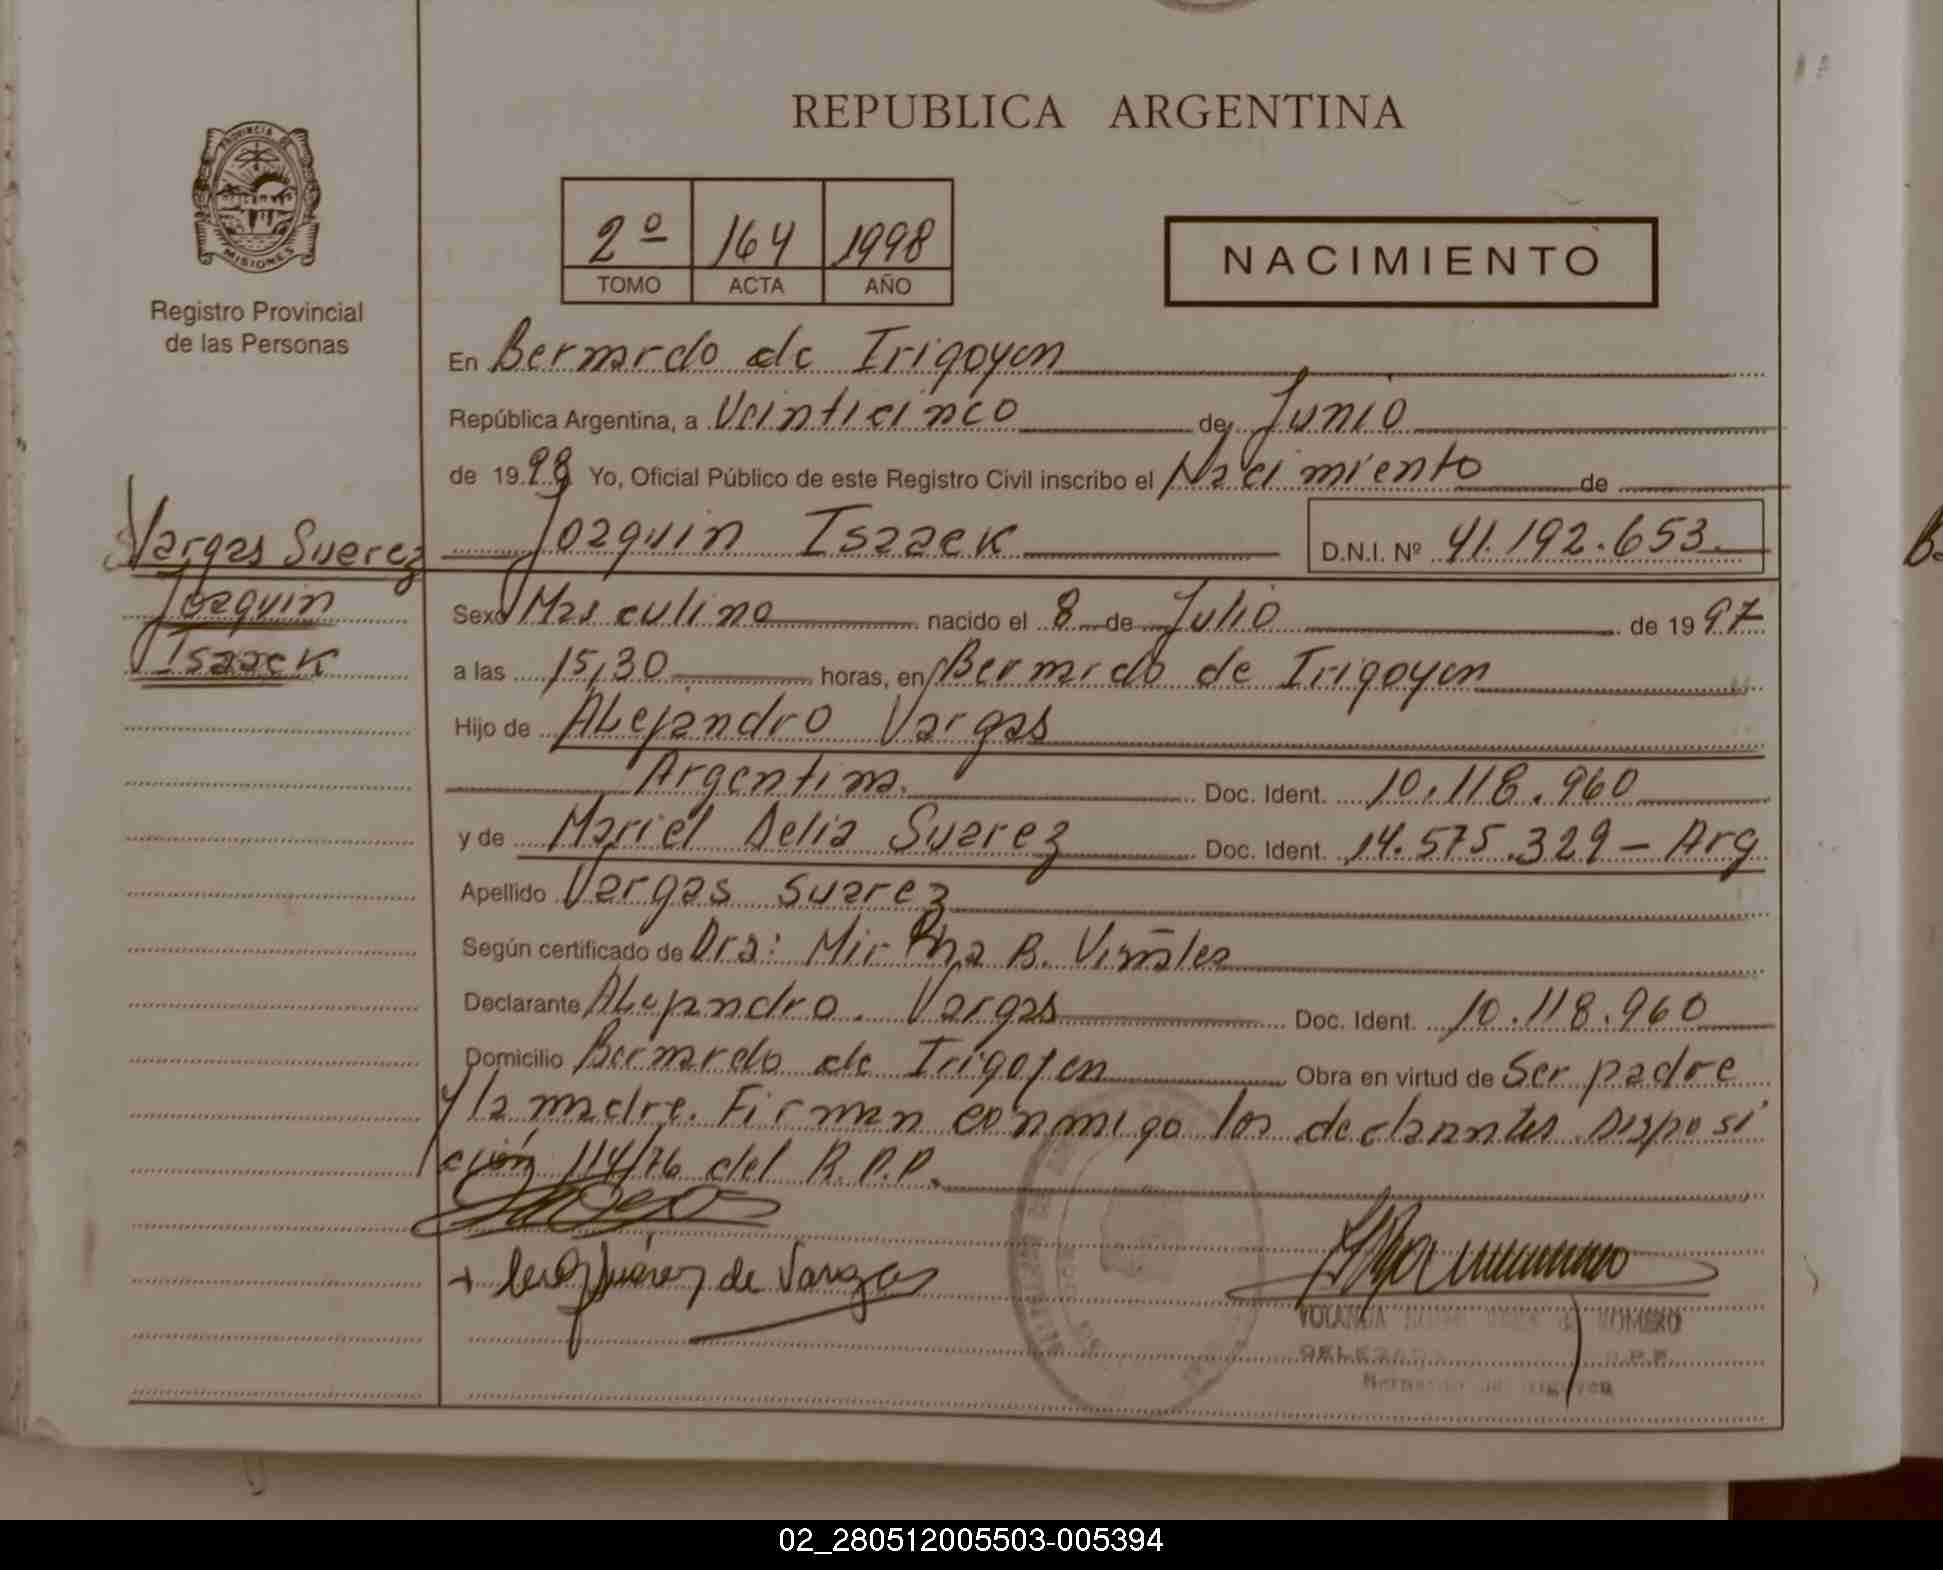 REPUBLICA ARGENTINA
PROVINCIA DE
MISIONES
Registro Provincial
de las Personas
2º 164 1998
TOMO ACTA AÑO
NACIMIENTO
En Bernardo de Irigoyen
República Argentina, a Veinticinco de Junio
de 1998 Yo, Oficial Público de este Registro Civil inscribo el Nacimiento de
Joaquin Isaack D.N.I. Nº 41.192.653.
Vargas Suarez
Joaquin
Isaack
Sexo Masculino nacido el 8 de Julio de 1997
a las 15,30 horas, en Bernardo de Irigoyen
Hijo de Alejandro Vargas
Argentina. Doc. Ident. 10.118.960
y de Mariel Delia Suarez Doc. Ident. 14.575.329 - Arg
Apellido Vargas Suarez
Según certificado de Dra: Mirtha B. Viñales
Declarante Alejandro. Vargas Doc. Ident. 10.118.960
Domicilio Bernardo de Irigoyen Obra en virtud de Ser padre
y la madre. Firman conmigo los declarantes Disposi
ción 114/76 del R.P.P.
Suárez de Vargas
YOLANDA ROMERO
DELEGADA R.P.P.
Bernardo de Irigoyen
02_280512005503-005394